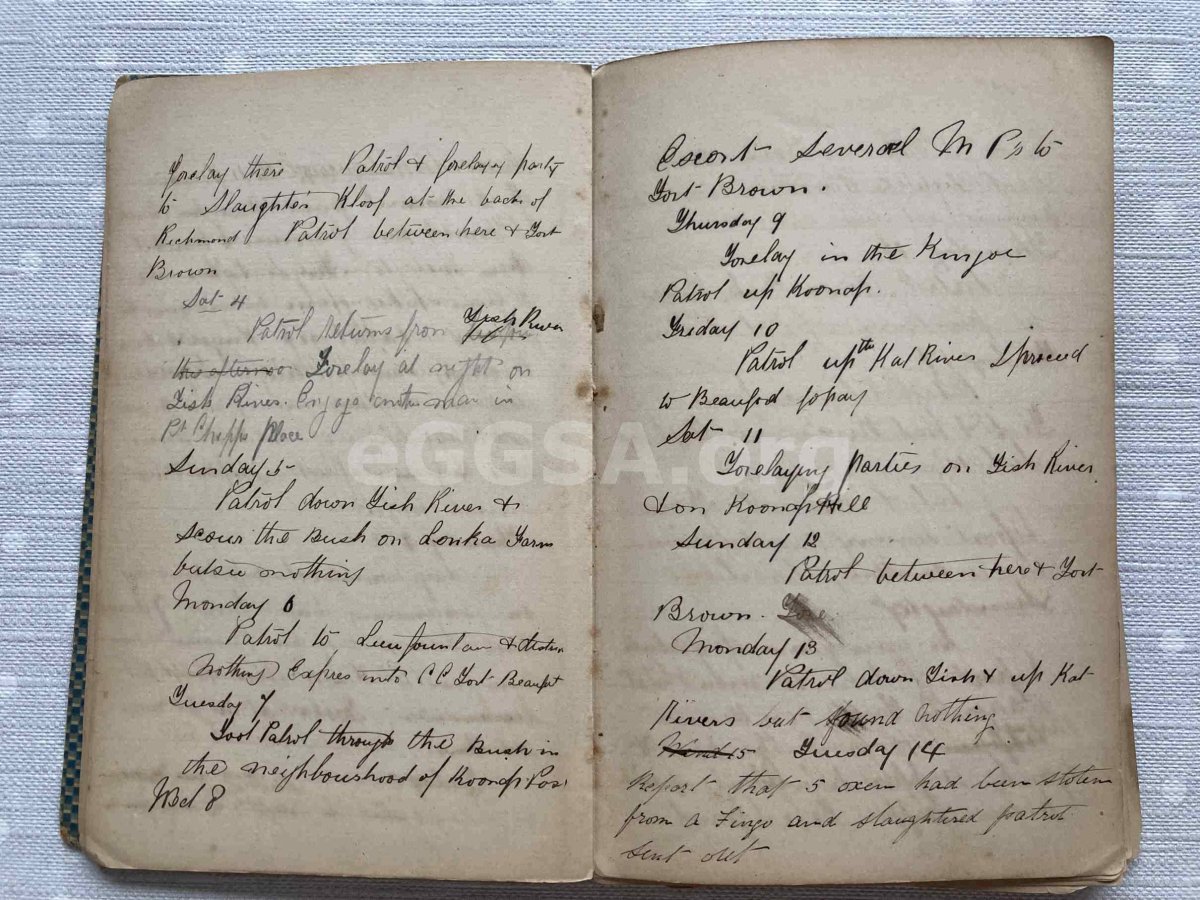 Forelay there Patrol & forelayg party
to Slaughters Kloof at the back of
Richmond Patrol between here & Fort
Brown
Sat 4
Patrol returns from Fish River
the afternoo Forelay at night on
Fish River. Engage another man in
Pt Chepps place
Sunday 5
Patrol down Fish River &
scour the Bush on Lonka Farm
but see nothing
Monday 6
Patrol to Leeufountain &
nothing Expres into CC Fort Beaufort
Tuesday 7
Foot Patrol through the Bush in
the neighbourhood of Koonap Pos
Wed 8
Escort several M Ps to
Fort Brown.
Thursday 9
Forelay in the
Patrol up Koonap.
Friday 10
Patrol up the Kat River I proceed
to Beaufod for pay
Sat 11
Forelaying parties on Fish River
& on Koonap Hill
Sunday 12
Patrol between here & Fort
Brown. Fore
Monday 13
Patrol down Fish & up Kat
Rivers but found nothing
Wend 15 Tuesday 14
Report that 5 oxen had been stolen
from a Fingo and slaughtered patrol
sent out
eGGSA.org